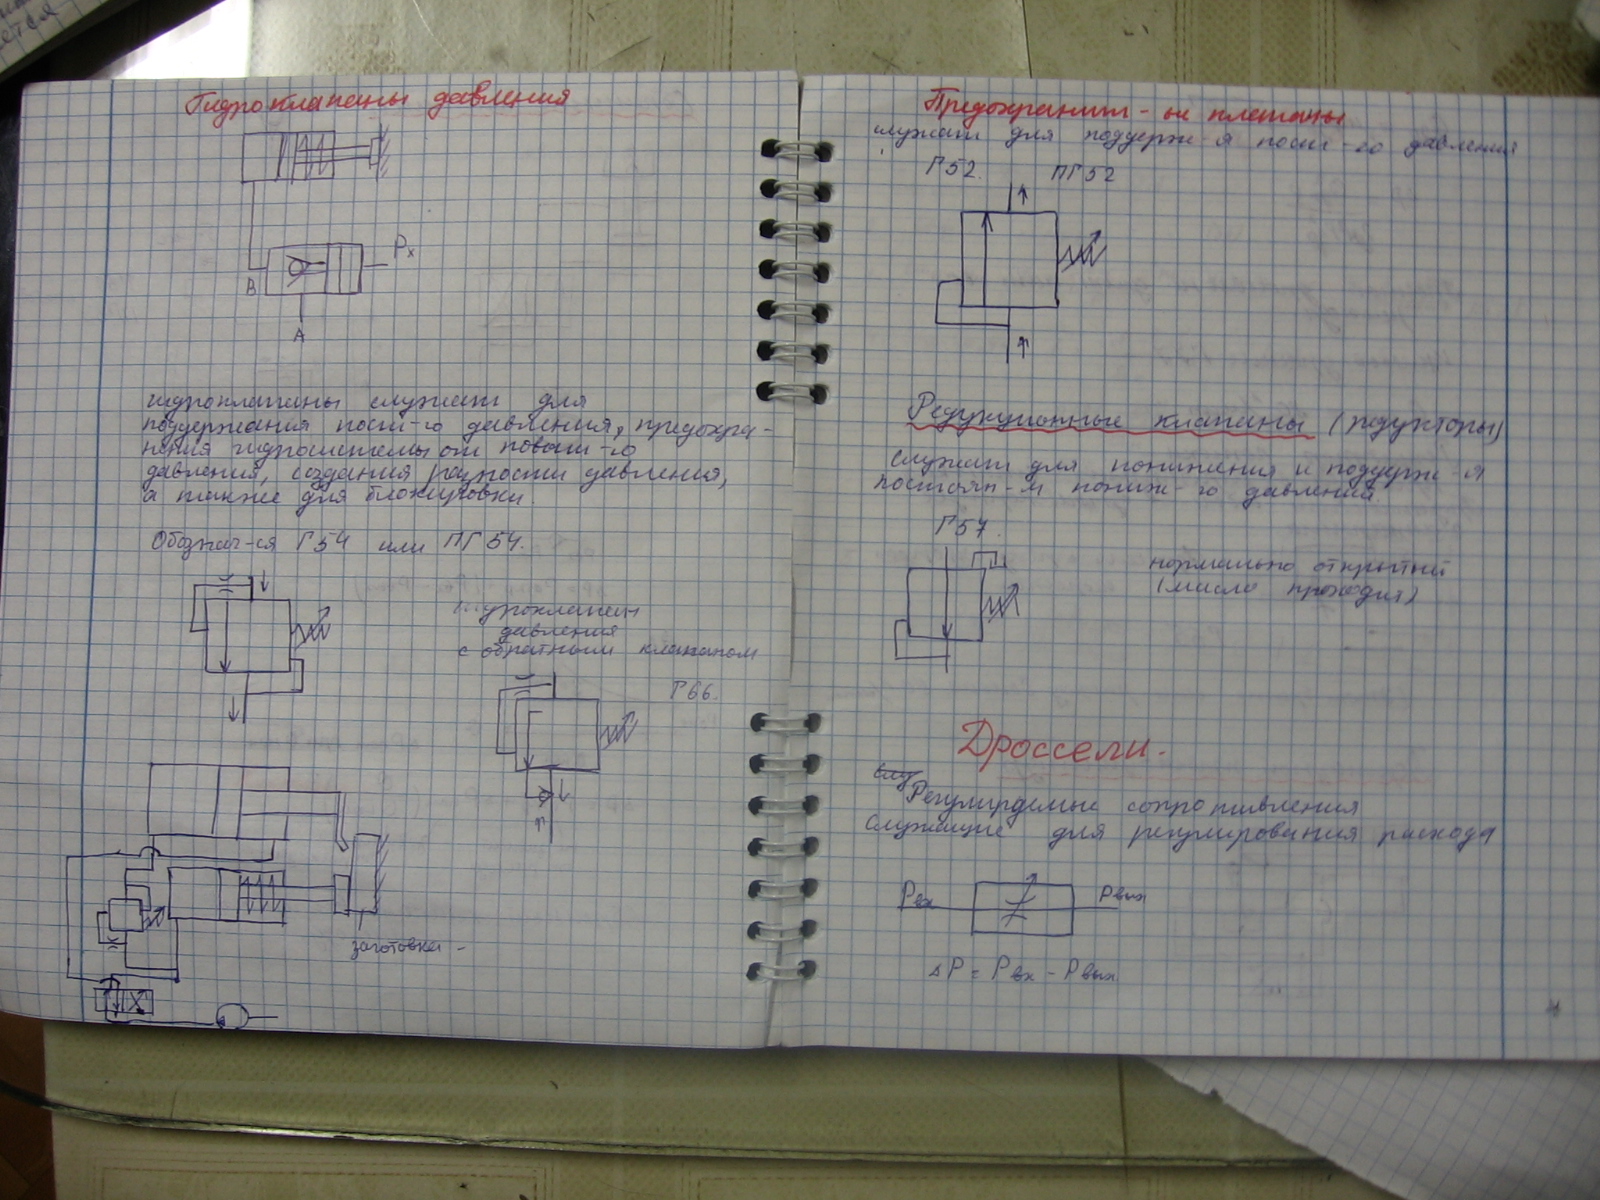 Гидроклапаны давления
Pх
В
А
гидроклапаны служат для
поддержания пост-го давления, предохра-
нения гидросистемы от повыш-го
давления, создания разности давления,
а также для блокировки.
Обознач-ся Г54 или ПГ54.
гидроклапан
давления
с обратным клапаном
Г66.
заготовка -
Предохранит-ые клапаны
служат для поддерж-я пост-го давления
Г52. ПГ52
Редукционные клапаны (редукторы)
служат для понижения и поддерж-я
постоян-м пониж-го давления.
Г57.
нормально открытый
(масло проходит)
Дроссели.
слу
Регулируемые сопротивления
служащие для регулирования расхода
Рвх Рвых
ΔР = Рвх - Рвых